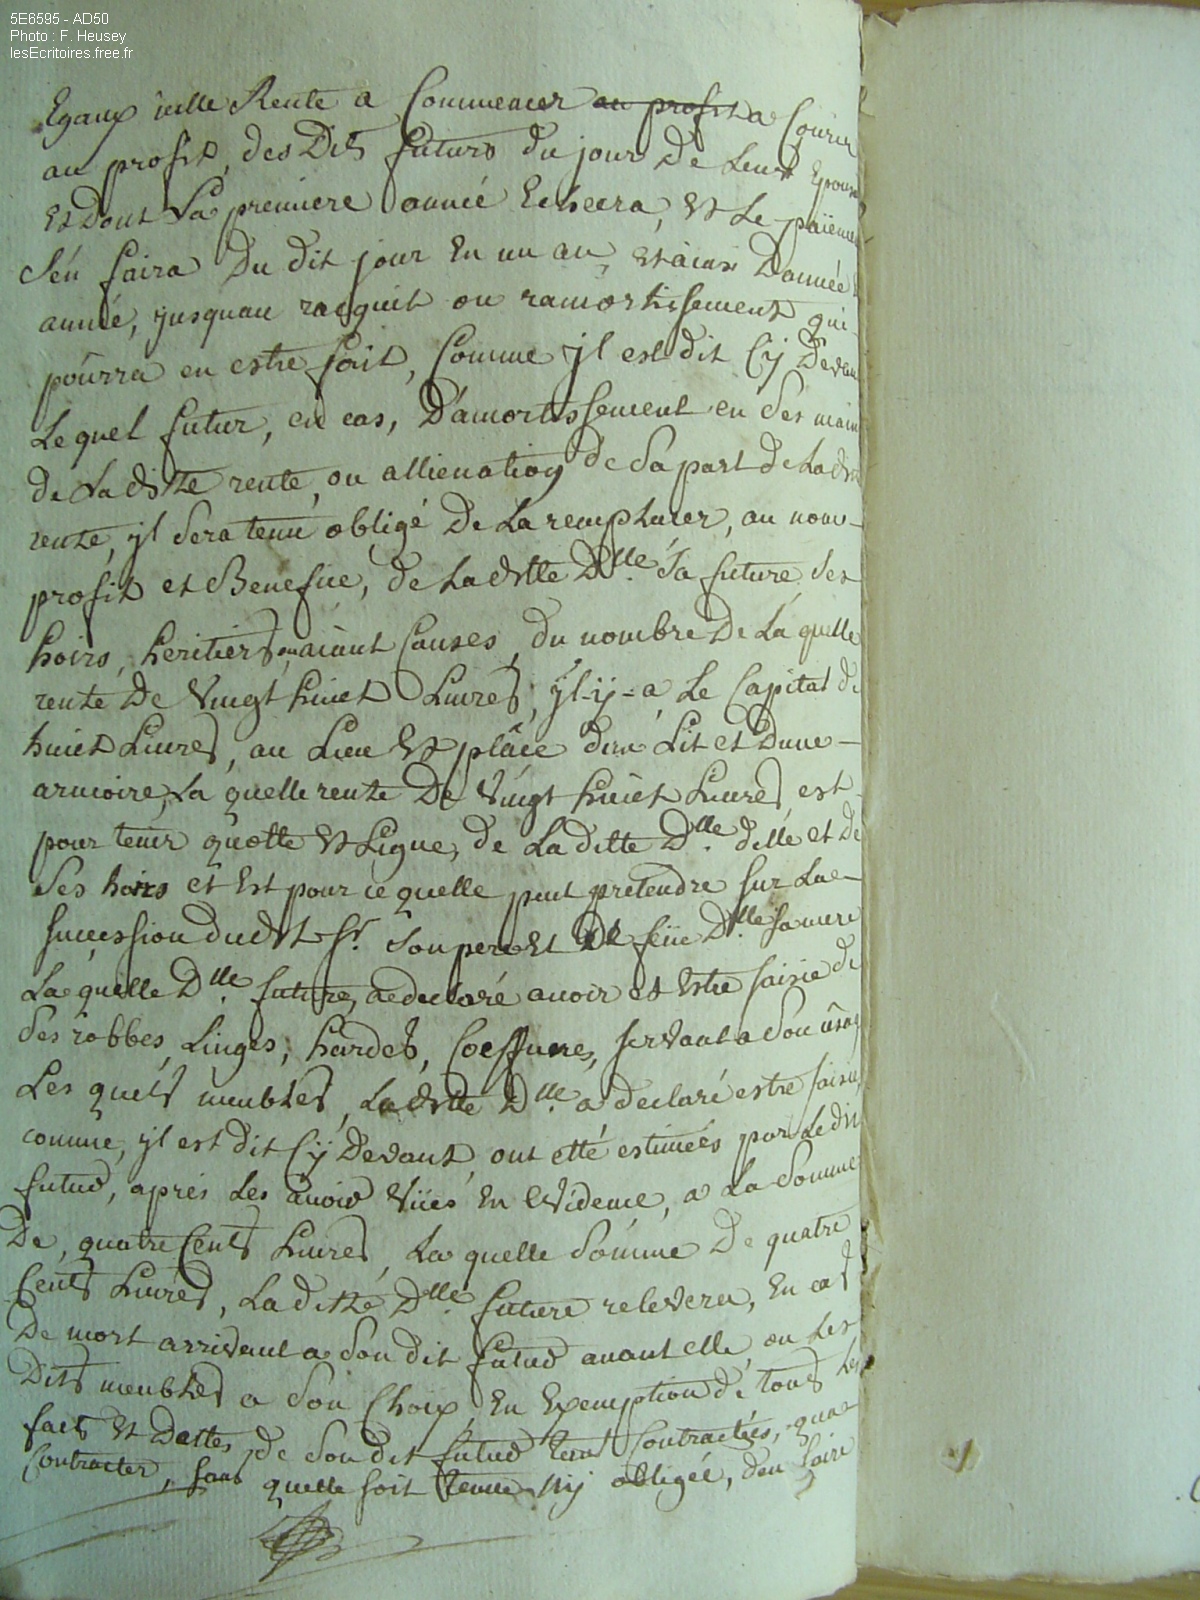 5E6595 - AD50
Photo : F. Heusey
lesEcritoires.free.fr
Egaux icelle Rente a Commencer au profit a Courir
au profit des Dits futurs du jour de Leur Epous
Et Dont La premiere année Echeera, Et Le païemen
s'en faira Du dit jour En un an, Et ainsi Dannée
année, jusquau racquit ou ramortissement qui
pourra en estre fait, Comme jl est dit Cÿ Devan
Lequel futur, en cas, D'amortissement en ses main
de Laditte rente, ou allienation de sa part de Laditte
rente, jl sera tenu obligé De La remplacer, au nom
profit et Benefice, de Laditte Dlle. sa future, ses
hoirs, heritiers, ou aiant Causes, du nombre De La quelle
rente De Vingt huict Livres, ÿl-ÿ-a Le Capital de
huict Livres, au Lieu Et place dun Lit et Dune
armoire, La quelle rente De Vingt huict Livres est
pour tenir quotte Et Ligne, de La ditte Dlle. d'elle et De
ses hoirs et Est pour ce quelle peut pretendre sur La
succession dudit Sr. Son pere Et De feüe Dlle. sa mere
La quelle Dlle. future, a declaré avoir et Estre saisie de
ses robbes, Linges, hardes, Coeffures, servant a son usag
Les quels meubles, Laditte Dlle. a declaré estre saisie
comme, jl est dit Cÿ Devant, ont etté estimées par Le dit
futur, aprés Les avoir Vües En Evidence, a La Somme
De, quatre Cents Livres, La quelle Somme De quatre
Cents Livres, La ditte Dlle. future relevera, En cas
De mort arrivant a Son dit futur avant elle, ou Les
Dits meubles a son Choix, En Exemption de tous les
faits Et Dettes, de Son dit futur Contractées, qua
Contracter, sans quelle soit tenue nÿ obligée, d'en faire